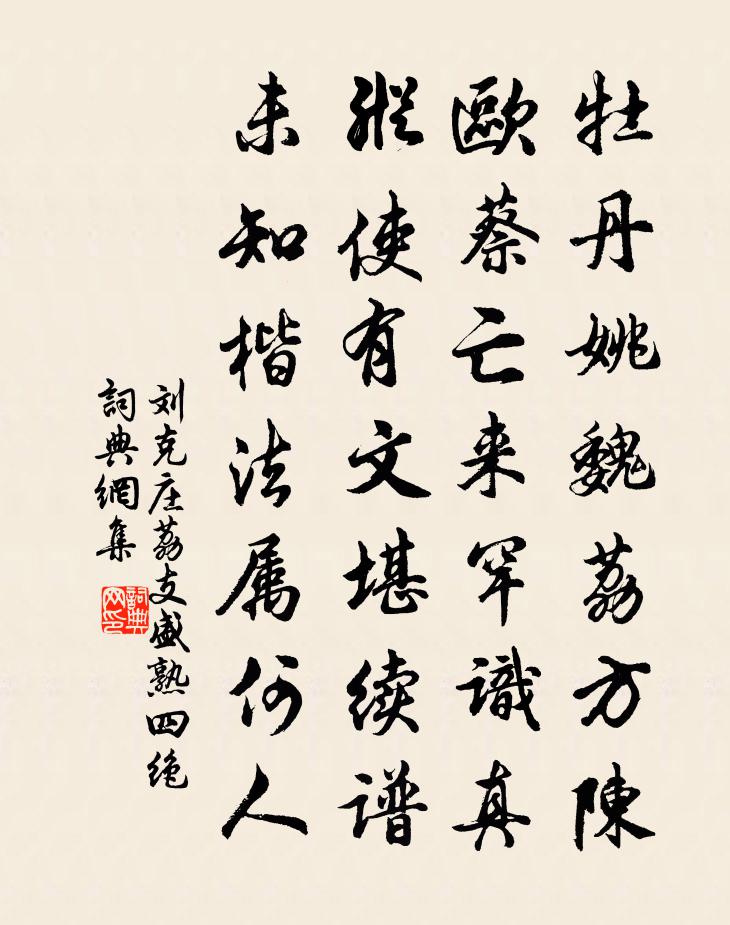 牡丹姚魏荔方陳
歐蔡亡来罕識真
縱使有文堪续谱
未知楷法属何人
刘克庄荔支盛熟四绝
詞典網集
詞典
网印